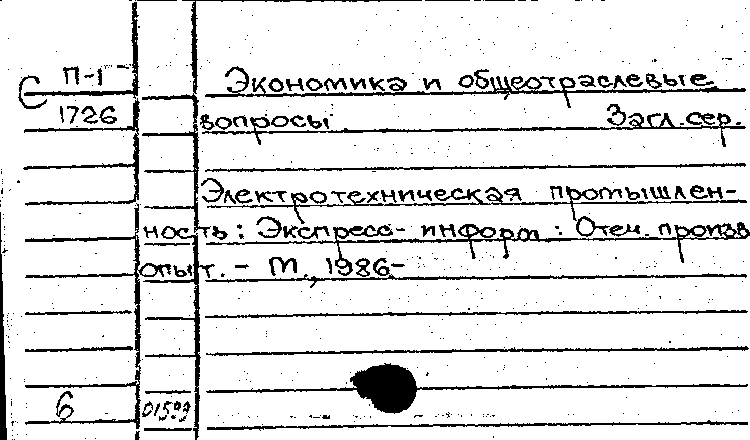 С П-1 Экономика и общеотраслевые
1726 вопросы. Загл. сер.
Электротехническая промышлен-
ность: Экспресс-информ : Отеч. произв
опыт. - М., 1986-
6 01599